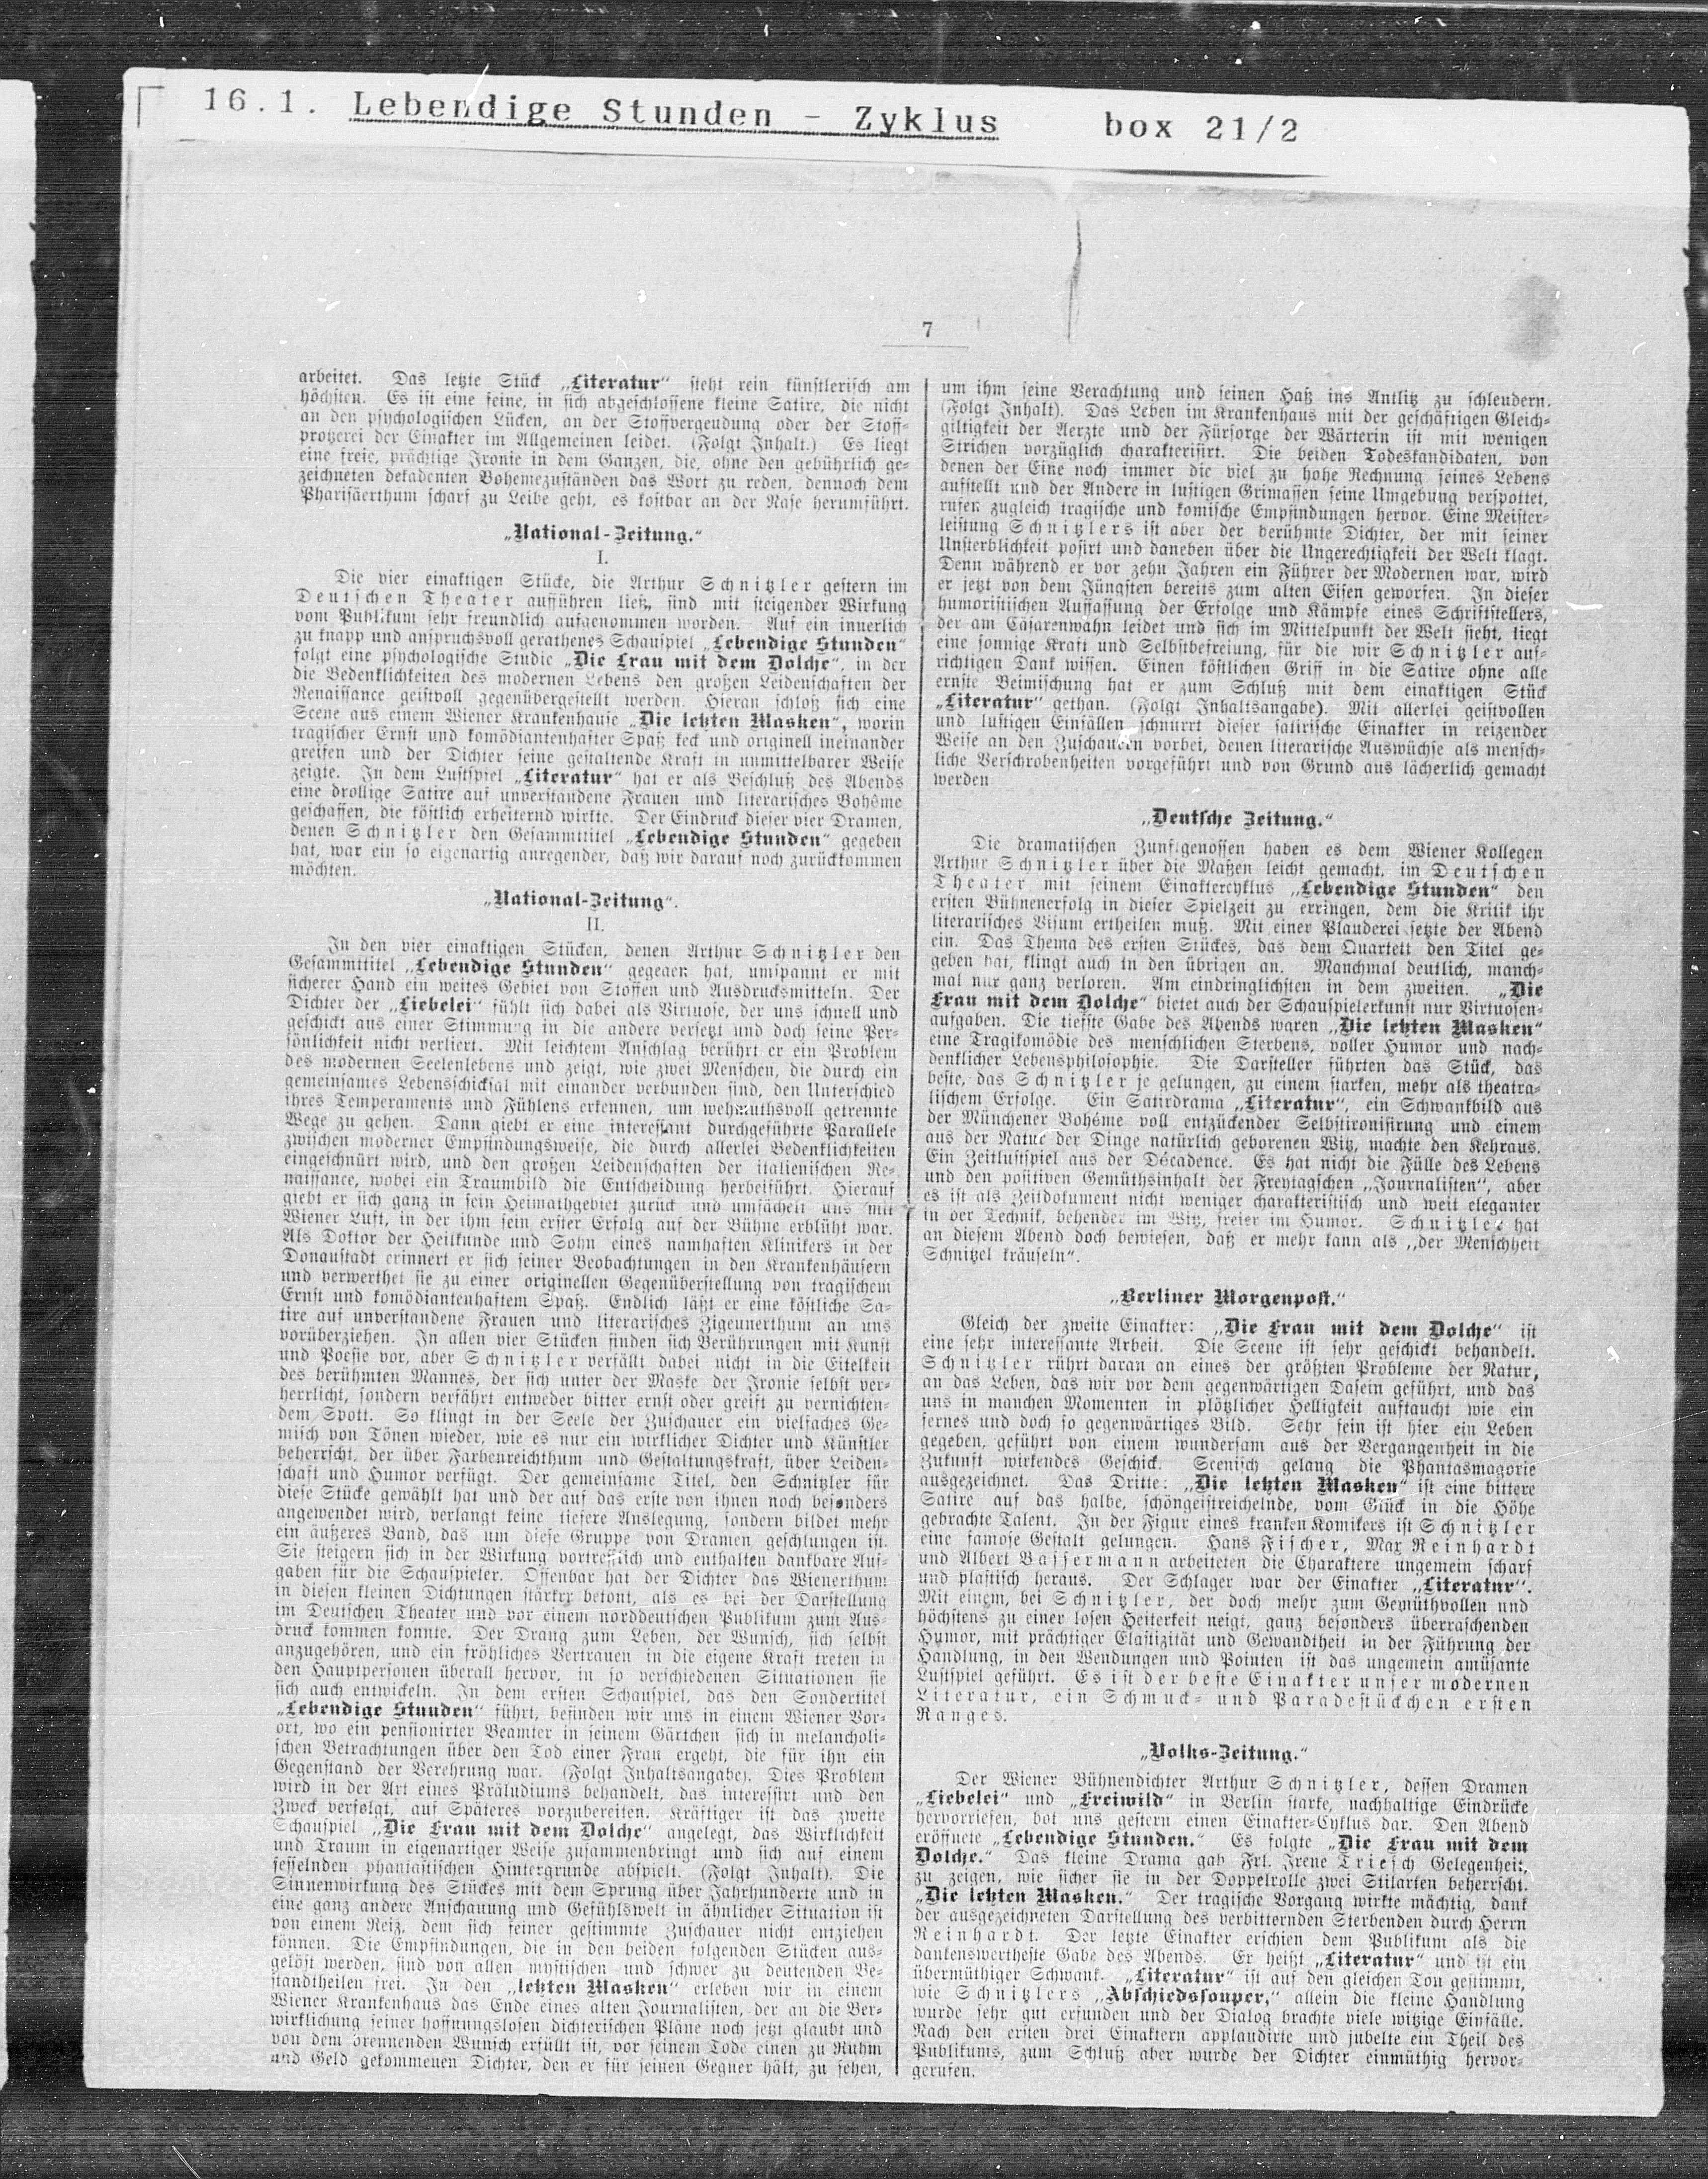 16.1. Lebendige Stunden - Zyklus box 21/2
7
arbeitet. Das letzte Stück „Literatur“ steht rein künstlerisch am
höchsten. Es ist eine feine, in sich abgeschlossene kleine Satire, die nicht
an den psychologischen Lücken, an der Stoffvergeudung oder der Stoff-
protzerei der Einakter im Allgemeinen leidet. (Folgt Inhalt.) Es liegt
eine freie, prächtige Ironie in dem Ganzen, die, ohne den gebührlich ge-
zeichneten dekadenten Bohemezuständen das Wort zu reden, dennoch dem
Pharisäerthum scharf zu Leibe geht, es kostbar an der Nase herumführt.
„National-Zeitung.“
I.
Die vier einaktigen Stücke, die Arthur Schnitzler gestern im
Deutschen Theater aufführen ließ, sind mit steigender Wirkung
vom Publikum sehr freundlich aufgenommen worden. Auf ein innerlich
zu knapp und anspruchsvoll gerathenes Schauspiel „Lebendige Stunden“
folgt eine psychologische Studie „Die Frau mit dem Dolche“, in der
die Bedenklichkeiten des modernen Lebens den großen Leidenschaften der
Renaissance geistvoll gegenübergestellt werden. Hieran schloß sich eine
Scene aus einem Wiener Krankenhause „Die letzten Masken“, worin
tragischer Ernst und komödiantenhafter Spaß keck und originell ineinander
greifen und der Dichter seine gestaltende Kraft in unmittelbarer Weise
zeigte. In dem Lustspiel „Literatur“ hat er als Beschluß des Abends
eine drollige Satire auf unverstandene Frauen und literarisches Bohême
geschaffen, die köstlich erheiternd wirkte. Der Eindruck dieser vier Dramen,
denen Schnitzler den Gesammttitel „Lebendige Stunden“ gegeben
hat, war ein so eigenartig anregender, daß wir darauf noch zurückkommen
möchten.
„National-Zeitung“.
II.
In den vier einaktigen Stücken, denen Arthur Schnitzler den
Gesammttitel „Lebendige Stunden“ gegeaen hat, umspannt er mit
sicherer Hand ein weites Gebiet von Stoffen und Ausdrucksmitteln. Der
Dichter der „Liebelei“ fühlt sich dabei als Virtuose, der uns schnell und
geschickt aus einer Stimmung in die andere versetzt und doch seine Per-
sönlichkeit nicht verliert. Mit leichtem Anschlag berührt er ein Problem
des modernen Seelenlebens und zeigt, wie zwei Menschen, die durch ein
gemeinsames Lebensschicksal mit einander verbunden sind, den Unterschied
ihres Temperaments und Fühlens erkennen, um wehmuthsvoll getrennte
Wege zu gehen. Dann giebt er eine interessant durchgeführte Parallele
zwischen moderner Empfindungsweise, die durch allerlei Bedenklichkeiten
eingeschnürt wird, und den großen Leidenschaften der italienischen Re-
naissance, wobei ein Traumbild die Entscheidung herbeiführt. Hierauf
giebt er sich ganz in sein Heimathgebiet zurück und umfächelt uns mit
Wiener Luft, in der ihm sein erster Erfolg auf der Bühne erblüht war.
Als Doktor der Heilkunde und Sohn eines namhaften Klinikers in der
Donaustadt erinnert er sich seiner Beobachtungen in den Krankenhäusern
und verwerthet sie zu einer originellen Gegenüberstellung von tragischem
Ernst und komödiantenhaftem Spaß. Endlich läßt er eine köstliche Sa-
tire auf unverstandene Frauen und literarisches Zigeunerthum an uns
vorüberziehen. In allen vier Stücken finden sich Berührungen mit Kunst
und Poesie vor, aber Schnitzler verfällt dabei nicht in die Eitelkeit
des berühmten Mannes, der sich unter der Maske der Ironie selbst ver-
herrlicht, sondern verfährt entweder bitter ernst oder greift zu vernichten-
dem Spott. So klingt in der Seele der Zuschauer ein vielfaches Ge-
misch von Tönen wieder, wie es nur ein wirklicher Dichter und Künstler
beherrscht, der über Farbenreichthum und Gestaltungskraft, über Leiden-
schaft und Humor verfügt. Der gemeinsame Titel, den Schnitzler für
diese Stücke gewählt hat und der auf das erste von ihnen noch besonders
angewendet wird, verlangt keine tiefere Auslegung, sondern bildet mehr
ein äußeres Band, das um diese Gruppe von Dramen geschlungen ist.
Sie steigern sich in der Wirkung vortrefflich und enthalten dankbare Auf-
gaben für die Schauspieler. Offenbar hat der Dichter das Wienerthum
in diesen kleinen Dichtungen stärker betont, als es bei der Darstellung
im Deutschen Theater und vor einem norddeutschen Publikum zum Aus-
druck kommen konnte. Der Drang zum Leben, der Wunsch, sich selbst
anzugehören, und ein fröhliches Vertrauen in die eigene Kraft treten in
den Hauptpersonen überall hervor, in so verschiedenen Situationen sie
sich auch entwickeln. In dem ersten Schauspiel, das den Sondertitel
„Lebendige Stunden“ führt, befinden wir uns in einem Wiener Vor-
ort, wo ein pensionirter Beamter in seinem Gärtchen sich in melancholi-
schen Betrachtungen über den Tod einer Frau ergeht, die für ihn ein
Gegenstand der Verehrung war. (Folgt Inhaltsangabe). Dies Problem
wird in der Art eines Präludiums behandelt, das interessirt und den
Zweck verfolgt, auf Späteres vorzubereiten. Kräftiger ist das zweite
Schauspiel „Die Frau mit dem Dolche“ angelegt, das Wirklichkeit
und Traum in eigenartiger Weise zusammenbringt und sich auf einem
fesselnden phantastischen Hintergrunde abspielt. (Folgt Inhalt). Die
Sinnenwirkung des Stückes mit dem Sprung über Jahrhunderte und in
eine ganz andere Anschauung und Gefühlswelt in ähnlicher Situation ist
von einem Reiz, dem sich feiner gestimmte Zuschauer nicht entziehen
können. Die Empfindungen, die in den beiden folgenden Stücken aus-
gelöst werden, sind von allen mystischen und schwer zu deutenden Be-
standtheilen frei. In den „letzten Masken“ erleben wir in einem
Wiener Krankenhaus das Ende eines alten Journalisten, der an die Ver-
wirklichung seiner hoffnungslosen dichterischen Pläne noch jetzt glaubt und
von dem brennenden Wunsch erfüllt ist, vor seinem Tode einen zu Ruhm
und Geld gekommenen Dichter, den er für seinen Gegner hält, zu sehen,
um ihm seine Verachtung und seinen Haß ins Antlitz zu schleudern.
(Folgt Inhalt). Das Leben im Krankenhaus mit der geschäftigen Gleich-
giltigkeit der Aerzte und der Fürsorge der Wärterin ist mit wenigen
Strichen vorzüglich charakterisirt. Die beiden Todeskandidaten, von
denen der Eine noch immer die viel zu hohe Rechnung seines Lebens
aufstellt und der Andere in lustigen Grimassen seine Umgebung verspottet,
rufen zugleich tragische und komische Empfindungen hervor. Eine Meister-
leistung Schnitzlers ist aber der berühmte Dichter, der mit seiner
Unsterblichkeit posirt und daneben über die Ungerechtigkeit der Welt klagt.
Denn während er vor zehn Jahren ein Führer der Modernen war, wird
er jetzt von dem Jüngsten bereits zum alten Eisen geworfen. In dieser
humoristischen Auffassung der Erfolge und Kämpfe eines Schriftstellers,
der am Cäsarenwahn leidet und sich im Mittelpunkt der Welt sieht, liegt
eine sonnige Kraft und Selbstbefreiung, für die wir Schnitzler auf-
richtigen Dank wissen. Einen köstlichen Griff in die Satire ohne alle
ernste Beimischung hat er zum Schluß mit dem einaktigen Stück
„Literatur“ gethan. (Folgt Inhaltsangabe). Mit allerlei geistvollen
und lustigen Einfällen schnurrt dieser satirische Einakter in reizender
Weise an den Zuschauern vorbei, denen literarische Auswüchse als mensch-
liche Verschrobenheiten vorgeführt und von Grund aus lächerlich gemacht
werden
„Deutsche Zeitung.“
Die dramatischen Zunftgenossen haben es dem Wiener Kollegen
Arthur Schnitzler über die Maßen leicht gemacht, im Deutschen
Theater mit seinem Einaktercyklus „Lebendige Stunden“ den
ersten Bühnenerfolg in dieser Spielzeit zu erringen, dem die Kritik ihr
literarisches Visum ertheilen muß. Mit einer Plauderei setzte der Abend
ein. Das Thema des ersten Stückes, das dem Quartett den Titel ge-
geben hat, klingt auch in den übrigen an. Manchmal deutlich, manch-
mal nur ganz verloren. Am eindringlichsten in dem zweiten. „Die
Frau mit dem Dolche“ bietet auch der Schauspielerkunst nur Virtuosen-
aufgaben. Die tiefste Gabe des Abends waren „Die letzten Masken“
eine Tragikomödie des menschlichen Sterbens, voller Humor und nach-
denklicher Lebensphilosophie. Die Darsteller führten das Stück, das
beste, das Schnitzler je gelungen, zu einem starken, mehr als theatra-
lischem Erfolge. Ein Satirdrama „Literatur“, ein Schwankbild aus
der Münchener Bohéme voll entzückender Selbstironisirung und einem
aus der Natur der Dinge natürlich geborenen Witz, machte den Kehraus.
Ein Zeitlustspiel aus der Décadence. Es hat nicht die Fülle des Lebens
und den positiven Gemüthsinhalt der Freytagschen „Journalisten“, aber
es ist als Zeitdokument nicht weniger charakteristisch und weit eleganter
in der Technik, behender im Witz, freier im Humor. Schnitzler hat
an diesem Abend doch bewiesen, daß er mehr kann als „der Menschheit
Schnitzel kräuseln“.
„Berliner Morgenpost.“
Gleich der zweite Einakter: „Die Frau mit dem Dolche“ ist
eine sehr interessante Arbeit. Die Scene ist sehr geschickt behandelt.
Schnitzler rührt daran an eines der größten Probleme der Natur,
an das Leben, das wir vor dem gegenwärtigen Dasein geführt, und das
uns in manchen Momenten in plötzlicher Helligkeit auftaucht wie ein
fernes und doch so gegenwärtiges Bild. Sehr fein ist hier ein Leben
gegeben, geführt von einem wundersam aus der Vergangenheit in die
Zukunft wirkendes Geschick. Scenisch gelang die Phantasmagorie
ausgezeichnet. Das Dritte: „Die letzten Masken“ ist eine bittere
Satire auf das halbe, schöngeistreichelnde, vom Glück in die Höhe
gebrachte Talent. In der Figur eines kranken Komikers ist Schnitzler
eine famose Gestalt gelungen. Hans Fischer, Max Reinhardt
und Albert Bassermann arbeiteten die Charaktere ungemein scharf
und plastisch heraus. Der Schlager war der Einakter „Literatur“.
Mit einem, bei Schnitzler, der doch mehr zum Gemüthvollen und
höchstens zu einer losen Heiterkeit neigt, ganz besonders überraschenden
Humor, mit prächtiger Elastizität und Gewandtheit in der Führung der
Handlung, in den Wendungen und Pointen ist das ungemein amüsante
Lustspiel geführt. Es ist der beste Einakter unser modernen
Literatur, ein Schmuck- und Paradestückchen ersten
Ranges.
„Volks-Zeitung.“
Der Wiener Bühnendichter Arthur Schnitzler, dessen Dramen
„Liebelei“ und „Freiwild“ in Berlin starke, nachhaltige Eindrücke
hervorriefen, bot uns gestern einen Einakter-Cyklus dar. Den Abend
eröffnete „Lebendige Stunden.“ Es folgte „Die Frau mit dem
Dolche.“ Das kleine Drama gab Frl. Irene Triesch Gelegenheit,
zu zeigen, wie sicher sie in der Doppelrolle zwei Stilarten beherrscht.
„Die letzten Masken.“ Der tragische Vorgang wirkte mächtig, dank
der ausgezeichneten Darstellung des verbitternden Sterbenden durch Herrn
Reinhardt. Der letzte Einakter erschien dem Publikum als die
dankenswertheste Gabe des Abends. Er heißt „Literatur“ und ist ein
übermüthiger Schwank. „Literatur“ ist auf den gleichen Ton gestimmt,
wie Schnitzlers „Abschiedssouper,“ allein die kleine Handlung
wurde sehr gut erfunden und der Dialog brachte viele witzige Einfälle.
Nach den ersten drei Einaktern applaudirte und jubelte ein Theil des
Publikums, zum Schluß aber wurde der Dichter einmüthig hervor-
gerufen.